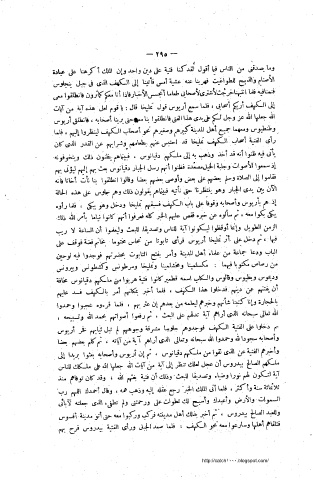 — ٢٩٥ —
وما يصدقنى من الناس فيا أقول لقد كنا فتية على دين واحد وإن الملك أكرهنا على عبادة
الأصنام والذبح للطواغيت فهربنا منه عشية أمس فأتينا إلى الكهف الذى فى جبل
فنمنا فيه فلما انتبهنا خرجت لأشترى لأصحابى طعاما فانطلقوا معى
إلى الكهف أريكم أصحابى ، فلما سمع أريوس قول تمليخا قال : يا قوم لعل هذه آية من آيات
الله جعلها الله عز وجل لكم على يدى هذا الفتى فانطلقوا بنا معه حتى يرينا أصحابه ، فانطلق أريوس
وطنطيوس ومعهما جميع أهل المدينة كبيرهم وصغيرهم نحو أصحاب الكهف لينظروا إليهم ، فلما
رأى الفتية أصحاب الكهف تمليخا قد احتبس عنهم بطعامهم وشرابهم عن القدر الذى كان
يأتى فيه ظنوا أنه قد أخذ وذهب به إلى ملكهم دقيانوس ، فبينما هم يظنون ذلك ويتخوفونه
إذ سمعوا الأصوات وجلبة الخيل
قاموا إلى الصلاة وسلم بعضهم على بعض وأوصى بعضهم بعضا وقالوا انطلقوا بنا نأت أخانا
الآن بين يدى الجبار وهو ينتظرنا حتى نأتيه فبينما هم يقولون ذلك وهم جلوس على هذه الحالة
إذ هم بأريوس وأصحابه وقوفا على باب الكهف فسبقهم تمليخا ودخل وهو يبكى ، فلما رأوه
يبكى بكوا معه ، ثم سألوه عن خبره فقص عليهم الخبر كله فعرفوا أنهم كانوا نياما بأمر الله ذلك
الزمن الطويل ، وإنما أوقظوا ليكونوا آية للناس وتصديقا للبعث وليعلموا أن الساعة لا ريب
فيها ، ثم دخل على أثر تمليخا أريوس فرأى تابوتا من نحاس مختوما بخاتم فضة فوقف على
الباب ودعا جماعة من عظماء أهل المدينة وأمر بفتح التابوت بحضرتهم فوجدوا فيه لوحين
من رصاص مكتوبا فيهما : مكسلمينا
أن يفتنهم عن دينهم فدخلوا هذا الكهف ، فلما أخبر بمكانهم أمر بالكهف فسد عليهم
بالحجارة وإنا كتبنا شأنهم وخبرهم ليعلمه من بعدهم إن عثر بهم ، فلما قرءوه عجبوا وحمدوا
الله تعالى سبحانه الذى أراهم آية تدلهم على البعث ، ثم رفعوا أصواتهم بحمد الله وتسبيحه ،
ثم دخلوا على الفتية الكهف فوجدوهم جلوسا مشرقة وجوههم لم تبل ثيابهم فخر أريوس
وأصحابه سجودا لله وحمدوا الله سبحانه وتعالى الذى أراهم آية من آياته ، ثم كلم بعضهم بعضا
وأخبرهم الفتية عن الذى لقوا من ملكهم دقيانوس ، ثم إن أريوس وأصحابه بعثوا بريدا إلى
ملكهم الصالح بيدروس أن عجل لعلك تنظر إلى آية من آيات الله جعلها الله على ملكك للناس
آية لتكون لهم نورا وضياء وتصديقا للبعث وذلك أن فتية بعثهم الله ، وقد كان توفاهم منذ
ثلاثمائة سنة وأكثر ، فلما أتى الملك الخبر رجع عقله إليه وذهب همه ، وقال أحمدك اللهم رب
السموات والأرض وأعبدك وأسبح لك تطولت على ورحمتنى ولم تطفئ النور الذى جعلته لآبائى
وللعبد الصالح بيدروس ، ثم أخبر بذلك أهل مدينته فركب وركبوا معه حتى أتوا مدينة أفسوس
فتلقاهم أهلها وساروا معه نحو الكهف ، فلما صعد الجبل ورأى الفتية بيدروس فرح بهم